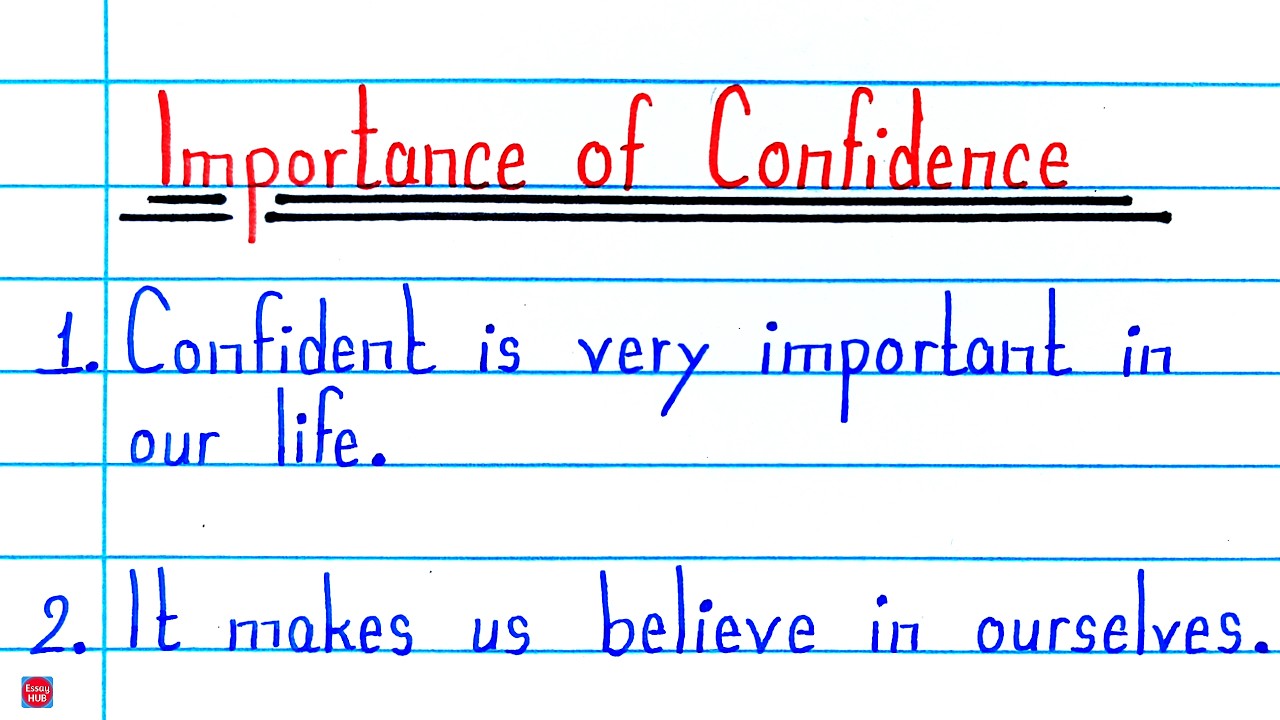 Importance of Confidence
1. Confident is very important in
our life.
2. It makes us believe in ourselves.
Essay
HUB